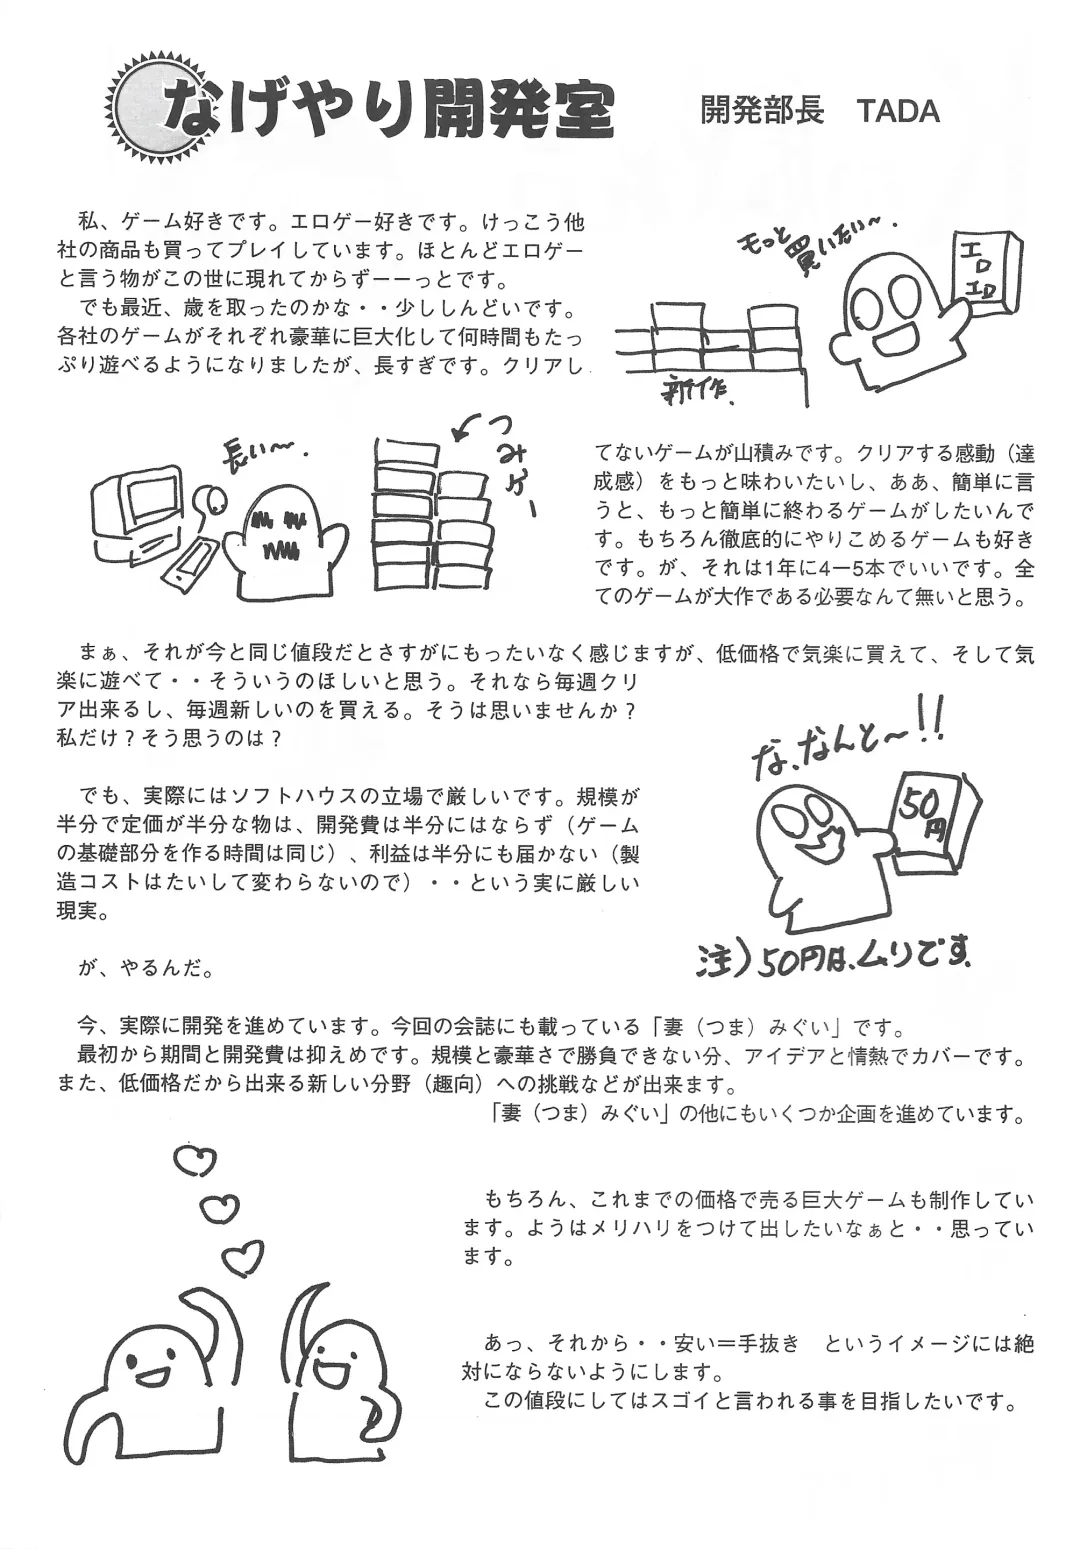 なげやり開発室
開発部長　TADA
私、ゲーム好きです。エロゲー好きです。けっこう他
社の商品も買ってプレイしています。ほとんどエロゲー
と言う物がこの世に現れてからずーーっとです。
でも最近、歳を取ったのかな・・少ししんどいです。
各社のゲームがそれぞれ豪華に巨大化して何時間もたっ
ぷり遊べるようになりましたが、長すぎです。クリアし
もっと
買いたい〜.
エロ
エロ
新作.
長い〜.
つみゲー
てないゲームが山積みです。クリアする感動（達
成感）をもっと味わいたいし、ああ、簡単に言
うと、もっと簡単に終わるゲームがしたいんで
す。もちろん徹底的にやりこめるゲームも好き
です。が、それは1年に4ー5本でいいです。全
てのゲームが大作である必要なんて無いと思う。
まぁ、それが今と同じ値段だとさすがにもったいなく感じますが、低価格で気楽に買えて、そして気
楽に遊べて・・そういうのほしいと思う。それなら毎週クリ
ア出来るし、毎週新しいのを買える。そうは思いませんか？
私だけ？そう思うのは？
な、なんと〜!!
50
円
注）50円は、ムリです.
でも、実際にはソフトハウスの立場で厳しいです。規模が
半分で定価が半分な物は、開発費は半分にはならず（ゲーム
の基礎部分を作る時間は同じ）、利益は半分にも届かない（製
造コストはたいして変わらないので）・・という実に厳しい
現実。
が、やるんだ。
今、実際に開発を進めています。今回の会誌にも載っている「妻（つま）みぐい」です。
最初から期間と開発費は抑えめです。規模と豪華さで勝負できない分、アイデアと情熱でカバーです。
また、低価格だから出来る新しい分野（趣向）への挑戦などが出来ます。
「妻（つま）みぐい」の他にもいくつか企画を進めています。
もちろん、これまでの価格で売る巨大ゲームも制作してい
ます。ようはメリハリをつけて出したいなぁと・・思ってい
ます。
あっ、それから・・安い＝手抜き　というイメージには絶
対にならないようにします。
この値段にしてはスゴイと言われる事を目指したいです。